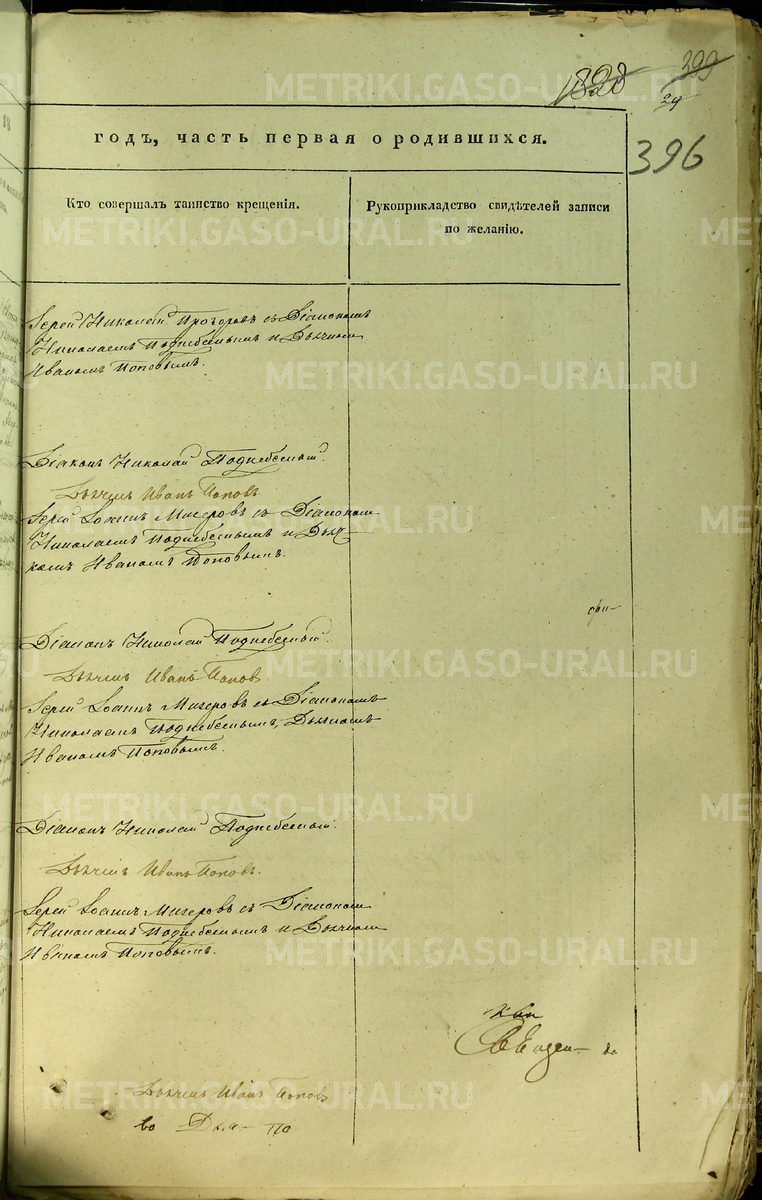 1828
399
24
396
годъ, часть первая о родившихся.
Кто совершалъ таинство крещенія.
Рукоприкладство свидѣтелей записи
по желанію.
Іерей Николай Прогоровъ съ Діакономъ
Николаемъ Поднебеснымъ и Дьячкомъ
Иваномъ Поповымъ.
Діаконъ Николай Поднебесный.
Дьячекъ Иванъ Поповъ
Іерей Іоаннъ Мизеровъ съ Діакономъ
Николаемъ Поднебеснымъ и Дьяч-
комъ Иваномъ Поповымъ.
Діаконъ Николай Поднебесный.
Дьячекъ Иванъ Поповъ.
Іерей Іоаннъ Мизеровъ съ Діакономъ
Николаемъ Поднебеснымъ, Дьячкомъ
Иваномъ Поповымъ.
Діаконъ Николай Поднебесный.
Дьячекъ Иванъ Поповъ.
Іерей Іоаннъ Мизеровъ съ Діакономъ
Николаемъ Поднебеснымъ и Дьячкомъ
Иваномъ Поповымъ.
Дьячекъ Иванъ Поповъ
METRIKI.GASO-URAL.RU